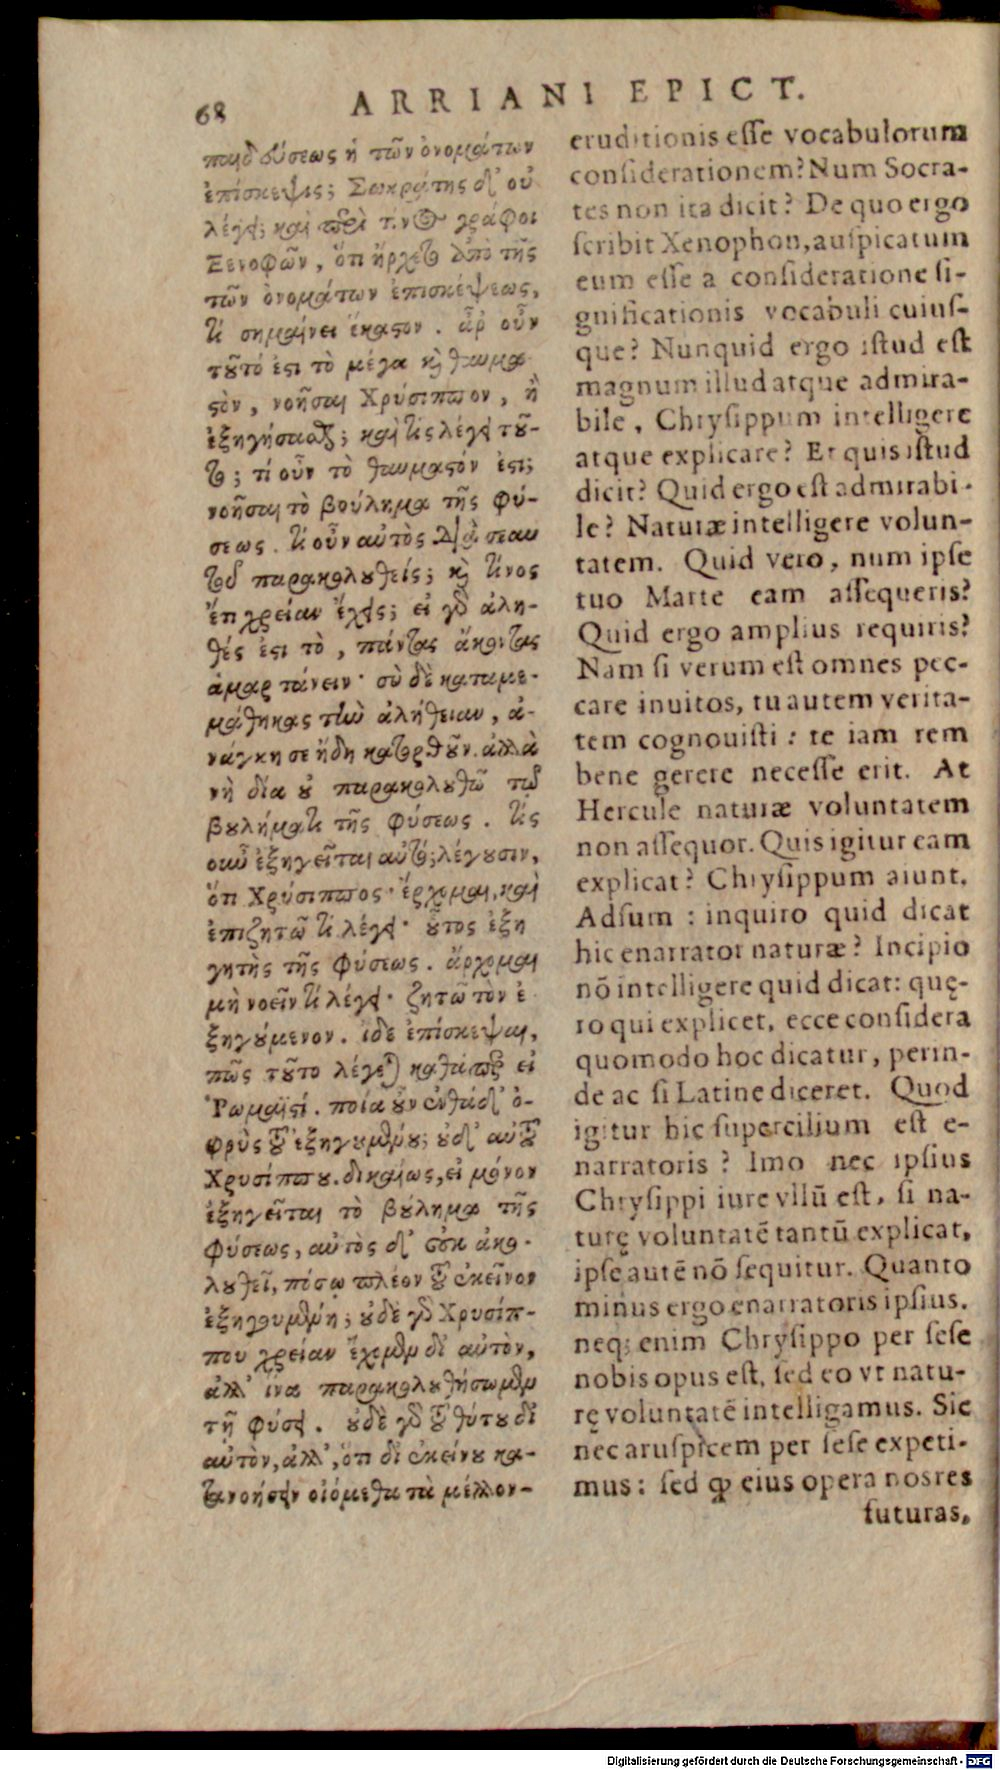 68 ARRIANI EPICT.
παιδεύσεως ἡ τῶν ὀνομάτων
ἐπίσκεψις; Σωκράτης δ' οὐ
λέγει; καὶ περὶ τίνος γράφει
Ξενοφῶν, ὅτι ἤρχετο ἀπὸ τῆς
τῶν ὀνομάτων ἐπισκέψεως,
τί σημαίνει ἕκαστον. ἆρ' οὖν
τοῦτό ἐστι τὸ μέγα καὶ θαυμα
στὸν, νοῆσαι Χρύσιππον, ἢ
ἐξηγήσασθαι; καὶ τίς λέγει τοῦ-
το; τί οὖν τὸ θαυμαστόν ἐστι;
νοῆσαι τὸ βούλημα τῆς φύ-
σεως. τί οὖν αὐτὸς διὰ σεαυ
τοῦ παρακολουθεῖς; καὶ τίνος
ἔτι χρείαν ἔχεις; εἰ γὰρ ἀλη-
θές ἐστι τὸ, πάντας ἄκοντας
ἁμαρτάνειν· σὺ δὲ καταμε-
μάθηκας τὴν ἀλήθειαν, ἀ-
νάγκη σε ἤδη κατορθοῦν. ἀλλὰ
νὴ δία οὐ παρακολουθῶ τῷ
βουλήματι τῆς φύσεως. τίς
οὖν ἐξηγεῖται αὐτό; λέγουσιν,
ὅτι Χρύσιππος· ἔρχομαι, καὶ
ἐπιζητῶ τί λέγει· οὗτος ἐξη
γητὴς τῆς φύσεως. ἄρχομαι
μὴ νοεῖν τί λέγει· ζητῶ τὸν ἐ
ξηγούμενον. ἰδὲ ἐπίσκεψαι,
πῶς τοῦτο λέγεται καθάπερ εἰ
Ῥωμαϊστί. ποία οὖν ἐνθάδ' ὀ-
φρὺς τοῦ ἐξηγουμένου; οὐδ' αὐτοῦ
Χρυσίππου. δικαίως, εἰ μόνον
ἐξηγεῖται τὸ βούλημα τῆς
φύσεως, αὐτὸς δ' οὐκ ἀκο-
λουθεῖ, πόσῳ πλέον τοῦ ἐκεῖνον
ἐξηγουμένου; οὐδὲ γὰρ Χρυσίπ-
που χρείαν ἔχομεν δι' αὐτὸν,
ἀλλ' ἵνα παρακολουθήσωμεν
τῇ φύσει. οὐδὲ γὰρ τοῦ θύτου δι'
αὐτὸν, ἀλλ', ὅτι δι' ἐκείνου κα-
τανοήσειν οἰόμεθα τὰ μέλλον-
eruditionis esse vocabulorum
considerationem? Num Socra-
tes non ita dicit? De quo ergo
scribit Xenophon, auspicatum
eum esse a consideratione si-
gnificationis vocabuli cuius-
que? Nunquid ergo istud est
magnum illud atque admira-
bile, Chrysippum intelligere
atque explicare? Et quis istud
dicit? Quid ergo est admirabi-
le? Naturæ intelligere volun-
tatem. Quid vero, num ipse
tuo Marte eam assequeris?
Quid ergo amplius requiris?
Nam si verum est omnes pec-
care inuitos, tu autem verita-
tem cognouisti: te iam rem
bene gerere necesse erit. At
Hercule naturæ voluntatem
non assequor. Quis igitur eam
explicat? Chrysippum aiunt.
Adsum: inquiro quid dicat
hic enarrator naturæ? Incipio
nō intelligere quid dicat: quę-
ro qui explicet, ecce considera
quomodo hoc dicatur, perin-
de ac si Latine diceret. Quod
igitur hic supercilium est e-
narratoris? Imo nec ipsius
Chrysippi iure vllū est, si na-
turę voluntatē tantū explicat,
ipse autē nō sequitur. Quanto
minus ergo enarratoris ipsius.
neq; enim Chrysippo per sese
nobis opus est, sed eo vt natu-
rę voluntatē intelligamus. Sic
nec aruspicem per sese expeti-
mus: sed ꝙ eius opera nos res
futuras,
Digitalisierung gefördert durch die Deutsche Forschungsgemeinschaft - DFG